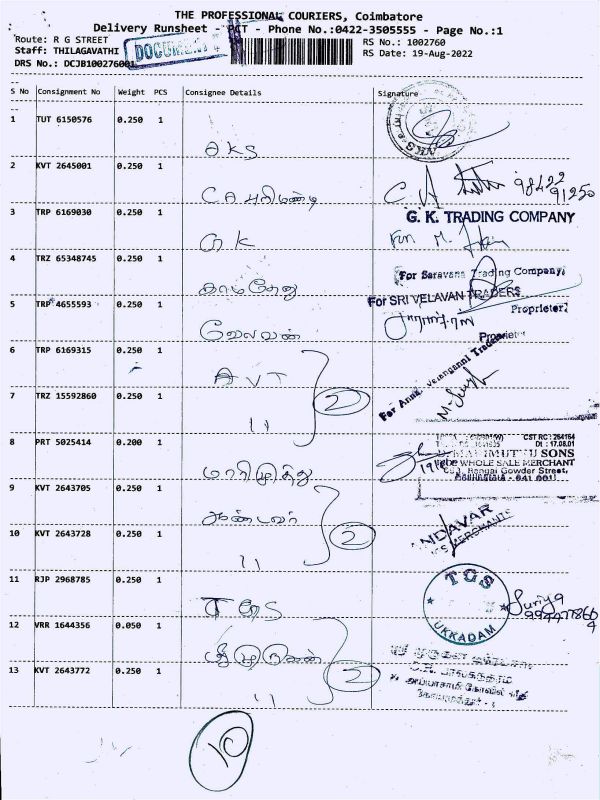 THE PROFESSIONAL COURIERS, Coimbatore
Delivery Runsheet - PCT - Phone No.:0422-3505555 - Page No.:1
Route: R G STREET
RS No.: 1002760
Staff: THILAGAVATHI
DOCUMENT
RS Date: 19-Aug-2022
DRS No.: DCJB100276001
S No Consignment No Weight PCS Consignee Details Signature
1 TUT 6150576 0.250 1 AKS
2 KVT 2645001 0.250 1 CA அரிமண்டி
98422
91250
3 TRP 6169030 0.250 1 GK
G. K. TRADING COMPANY
For M.
4 TRZ 65348745 0.250 1 காமதேனு
For Saravana Trading Company,
Proprietor
5 TRP 4655593 0.250 1 வேலவன்
For SRI VELAVAN TRADERS
Proprietor
6 TRP 6169315 0.250 1 AVT
2
For Annai Velanganni Traders
7 TRZ 15592860 0.250 1 ''
8 PRT 5025414 0.200 1 மாரிமுத்து
CST RC : 264164
Dt : 17.08.01
MARIMUTHU SONS
WHOLE SALE MERCHANT
Rangai Gowder Street,
641 001
9 KVT 2643705 0.250 1 ஆண்டவர்
2
ANDAVAR
MERCHANTS
10 KVT 2643728 0.250 1 ''
11 RJP 2968785 0.250 1 TGS
TGS
UKKADAM
Suriya
12 VRR 1644356 0.050 1 ஸ்ரீ முருகன்
2
ஸ்ரீ முருகன்
13 KVT 2643772 0.250 1 ''
10